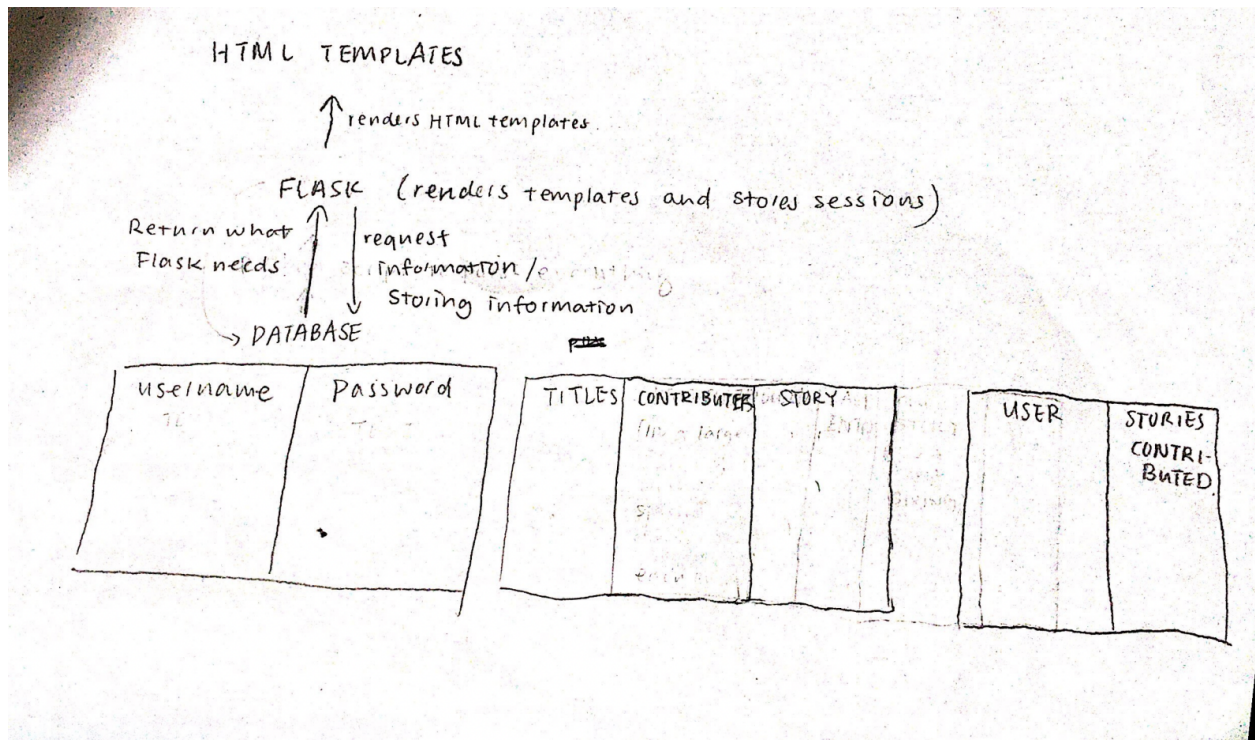 HTML TEMPLATES
renders HTML templates.
FLASK (renders templates and stores sessions)
Return what
Flask needs
request
information/
storing information
DATABASE
username
Password
TITLES
CONTRIBUTERS
STORY
USER
STORIES
CONTRI-
BUTED.